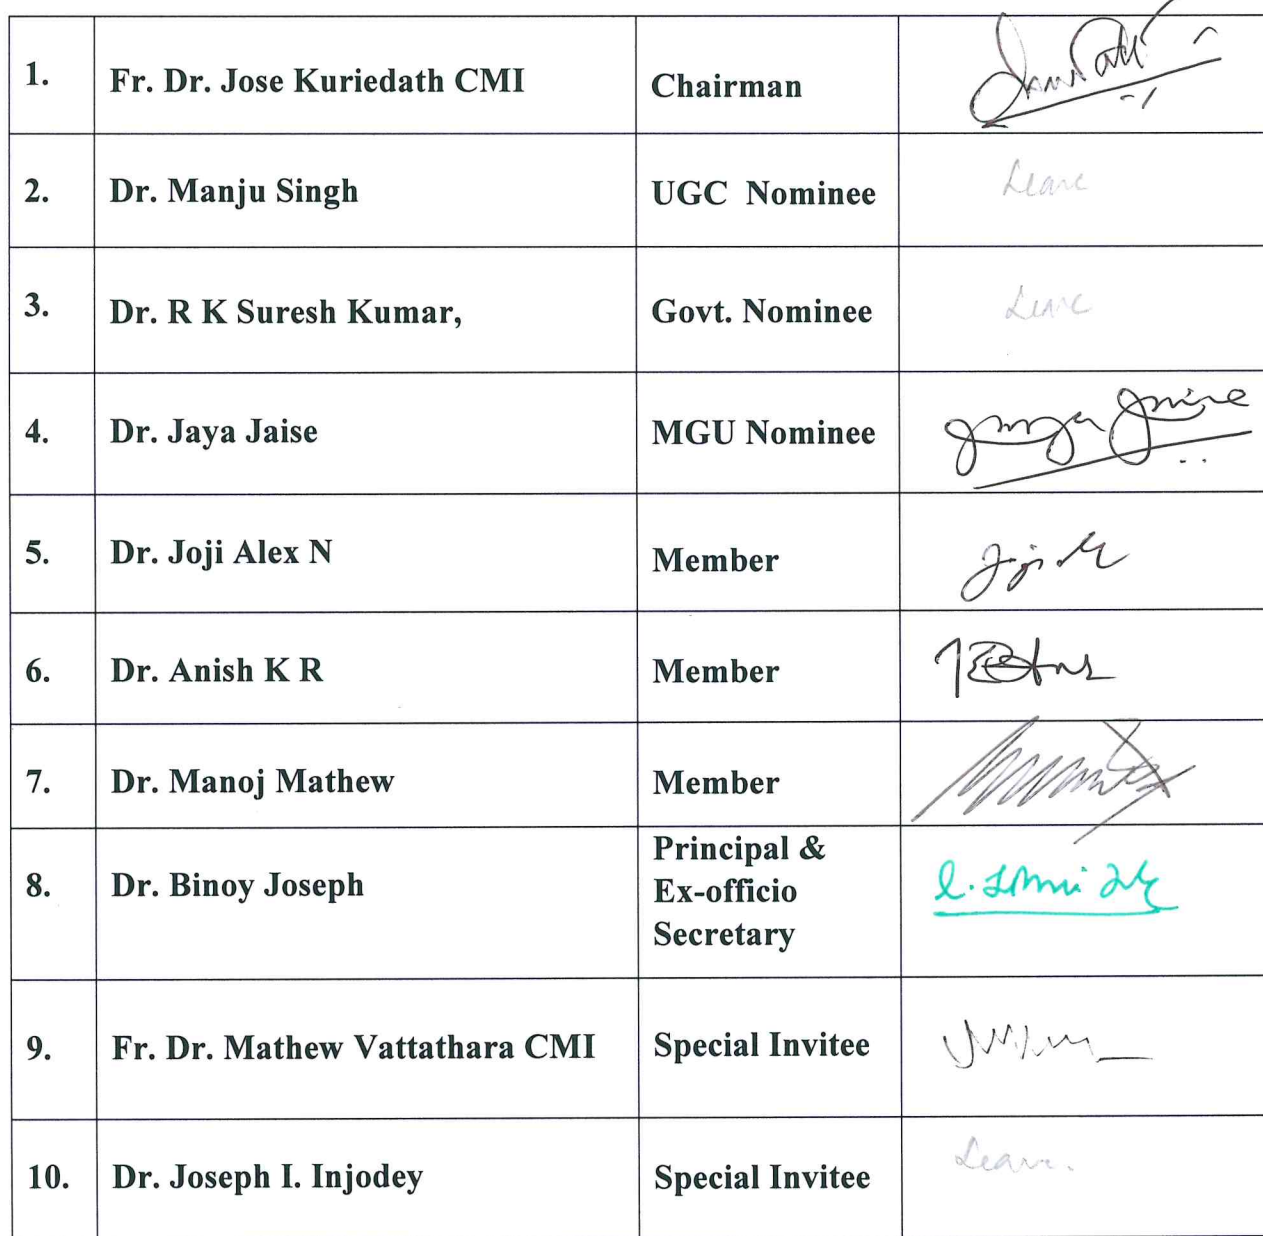 1. Fr. Dr. Jose Kuriedath CMI Chairman
2. Dr. Manju Singh UGC Nominee Leave
3. Dr. R K Suresh Kumar, Govt. Nominee Leave
4. Dr. Jaya Jaise MGU Nominee Jaya Jaise
5. Dr. Joji Alex N Member
6. Dr. Anish K R Member
7. Dr. Manoj Mathew Member
8. Dr. Binoy Joseph Principal &
Ex-officio
Secretary
9. Fr. Dr. Mathew Vattathara CMI Special Invitee
10. Dr. Joseph I. Injodey Special Invitee Leave.